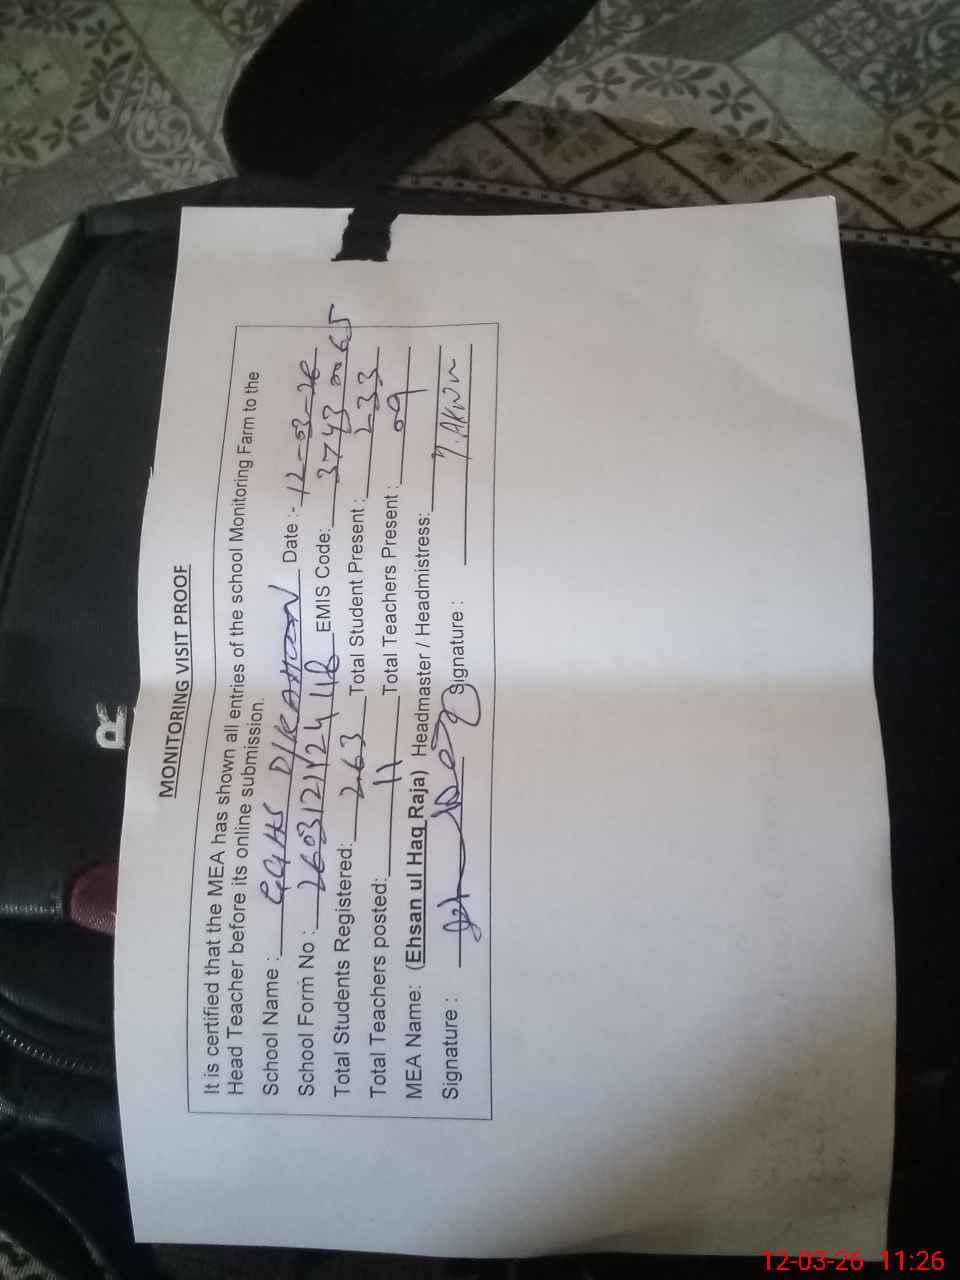 MONITORING VISIT PROOF
It is certified that the MEA has shown all entries of the school Monitoring Farm to the
Head Teacher before its online submission.
School Name : GGHS Date :- 12-03-26
School Form No : EMIS Code: 3743 0065
Total Students Registered: 263 Total Student Present : 233
Total Teachers posted: 11 Total Teachers Present : 09
MEA Name: (Ehsan ul Haq Raja) Headmaster / Headmistress:
Signature : Signature :
12-03-26 11:26